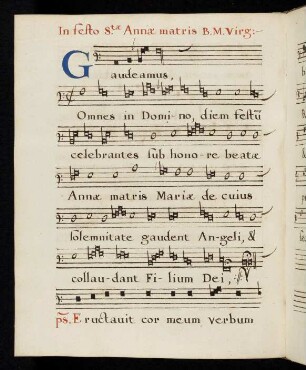 In festo S.tæ Annæ matris B.M.Virg:
Gaudeamus,
Omnes in Domi-no, diem festū
celebrantes sub hono-re beatæ
Annæ matris Mariæ de cuius
solemnitate gaudent An-geli, &
collau-dant Fi-lium Dei,
ps. Eructauit cor meum verbum